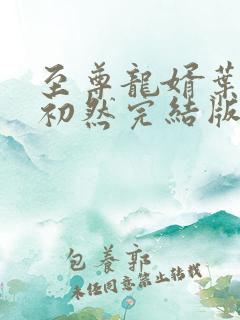 至尊龍婿葉
初然完結版
包養郭
未任同意禁止转载